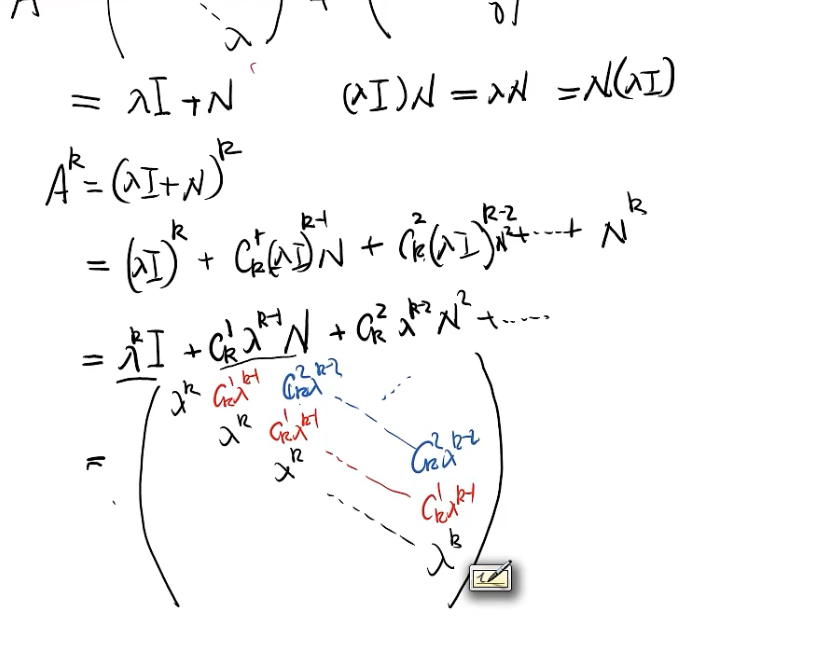 A ( λ ) + ( 0 )
= λI + N (λI)N = λN = N(λI)
A^k = (λI+N)^k
= (λI)^k + C_k^1(λI)^{k-1}N + C_k^2(λI)^{k-2}N^2 + ⋯⋯ + N^k
= λ^k I + C_k^1 λ^{k-1} N + C_k^2 λ^{k-2} N^2 + ⋯⋯
λ^k C_k^1 λ^{k-1} C_k^2 λ^{k-2} ⋯
λ^k C_k^1 λ^{k-1} C_k^2 λ^{k-2}
= λ^k C_k^1 λ^{k-1}
λ^k